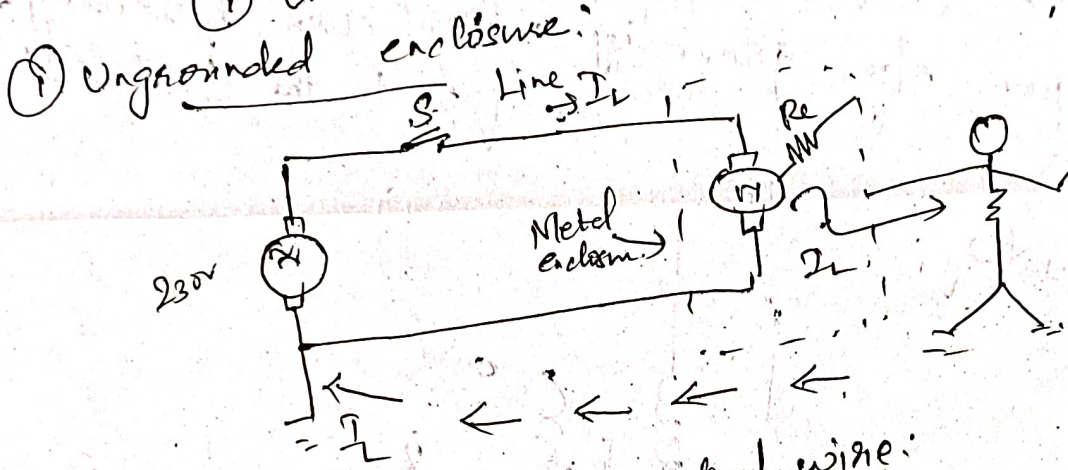 ① Ungrounded enclosure:
S
Line → I_L
Re
M
Metal
enclosm.
230V
I_L
I_L
wire: